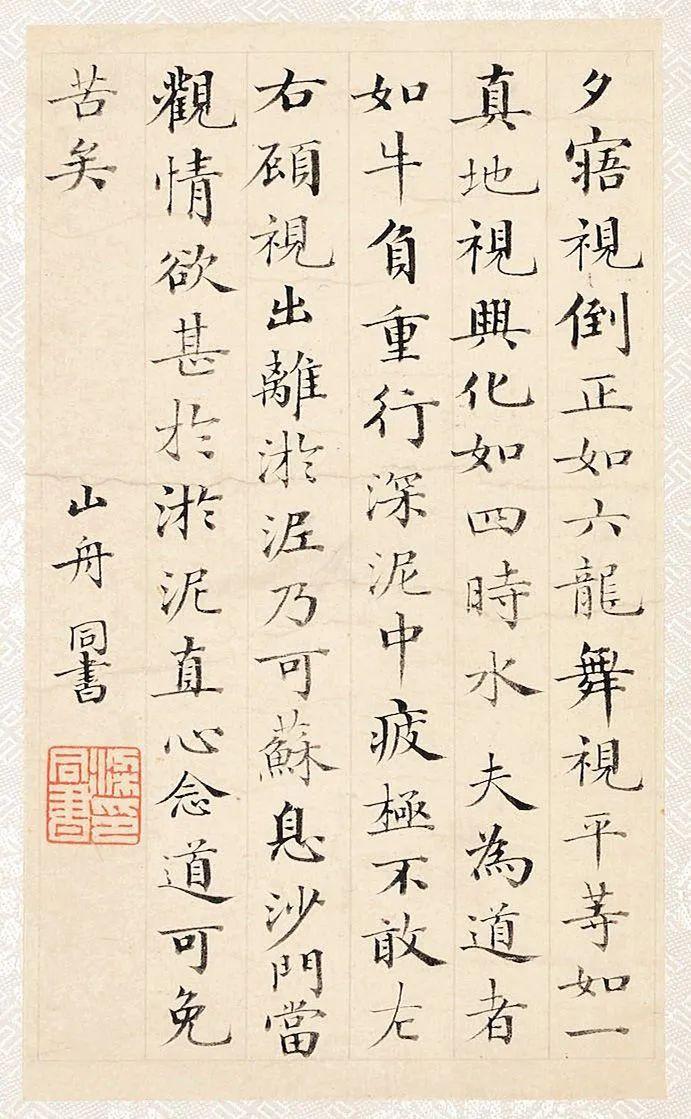 夕寤視倒正如六龍舞視平等如一
真地視興化如四時水夫為道者
如牛負重行深泥中疲極不敢左
右頋視出離淤泥乃可蘇息沙門當
觀情欲甚於淤泥直心念道可免
苦矣
山舟同書
梁印同書